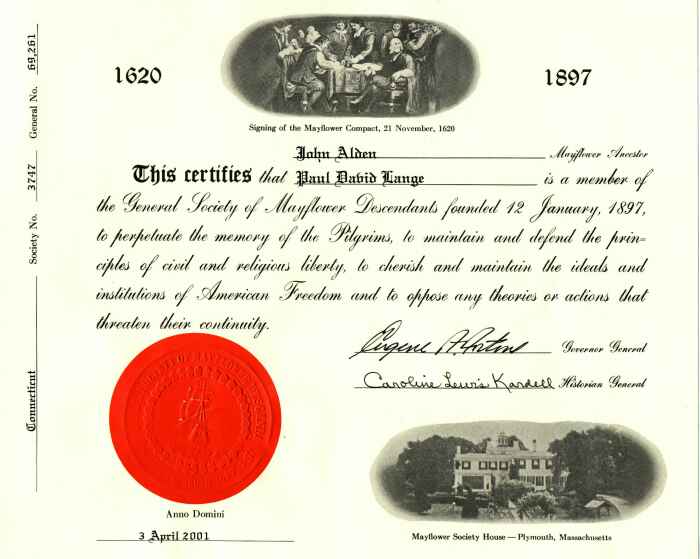 1620
1897
Signing of the Mayflower Compact, 21 November, 1620
John Alden Mayflower Ancestor
This certifies that Paul David Lange is a member of
the General Society of Mayflower Descendants founded 12 January, 1897,
to perpetuate the memory of the Pilgrims, to maintain and defend the prin=
ciples of civil and religious liberty, to cherish and maintain the ideals and
institutions of American Freedom and to oppose any theories or actions that
threaten their continuity.
Governor General
Caroline Lewis Kardell Historian General
Anno Domini
3 April 2001
Mayflower Society House — Plymouth, Massachusetts
Connecticut Society No. 3747 General No. 69,261